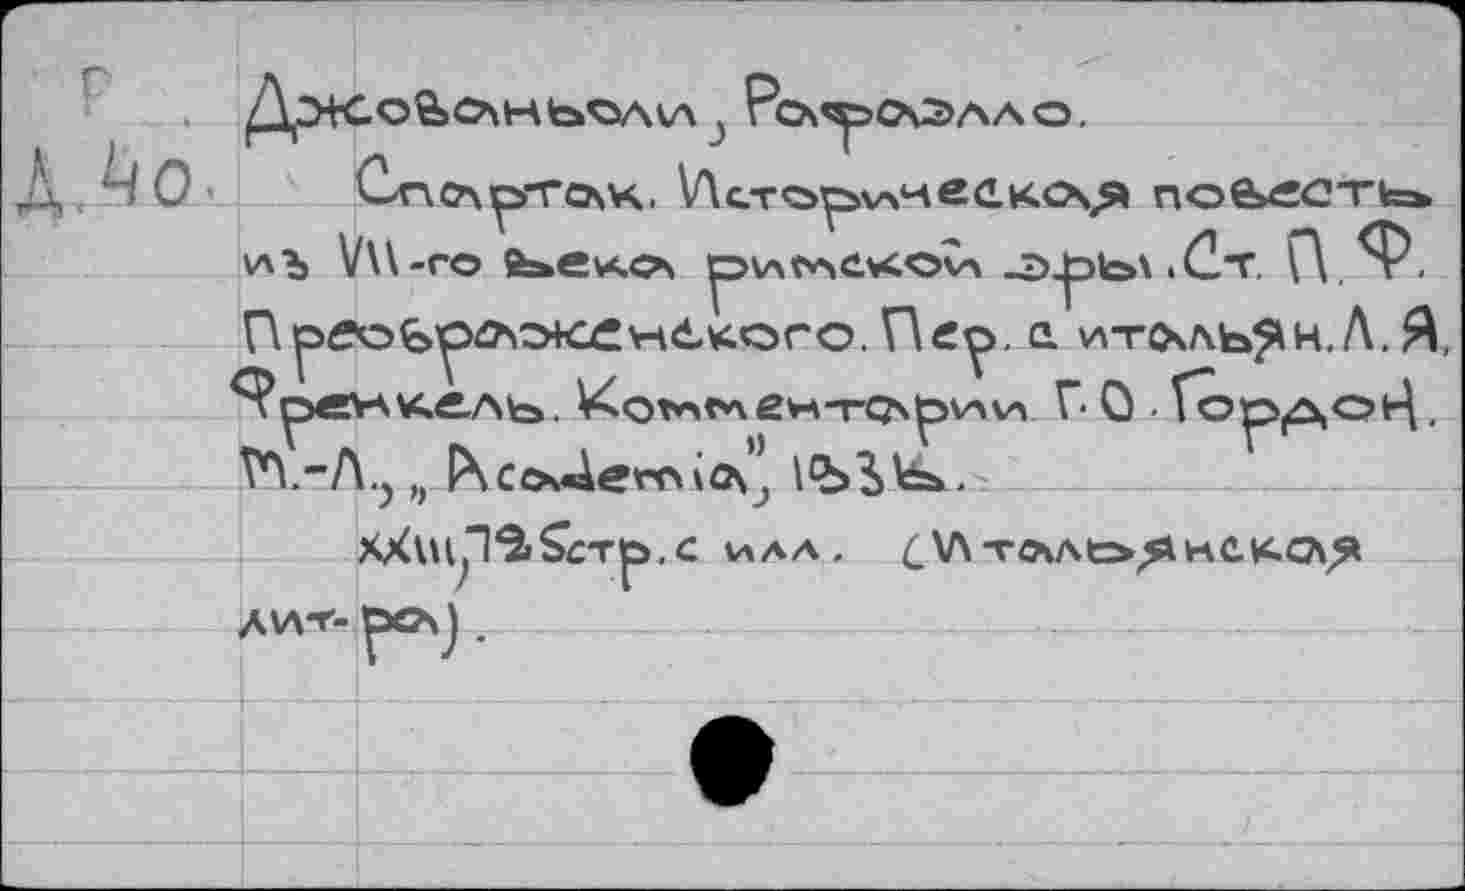 Г
Д.40.
Джованьоли, Рафаэлло.
Спартак. Историческая повесть
изъ VII-го века римской эры. Ст. П. Ф.
Преображенского. Пер. с итальян. А. Я.
Френкель. Комментарии Г. О. Гордон.
М.-Л., „Academia", 1934.
XXIII, 725 стр. с илл. (Итальянская
лит-ра).